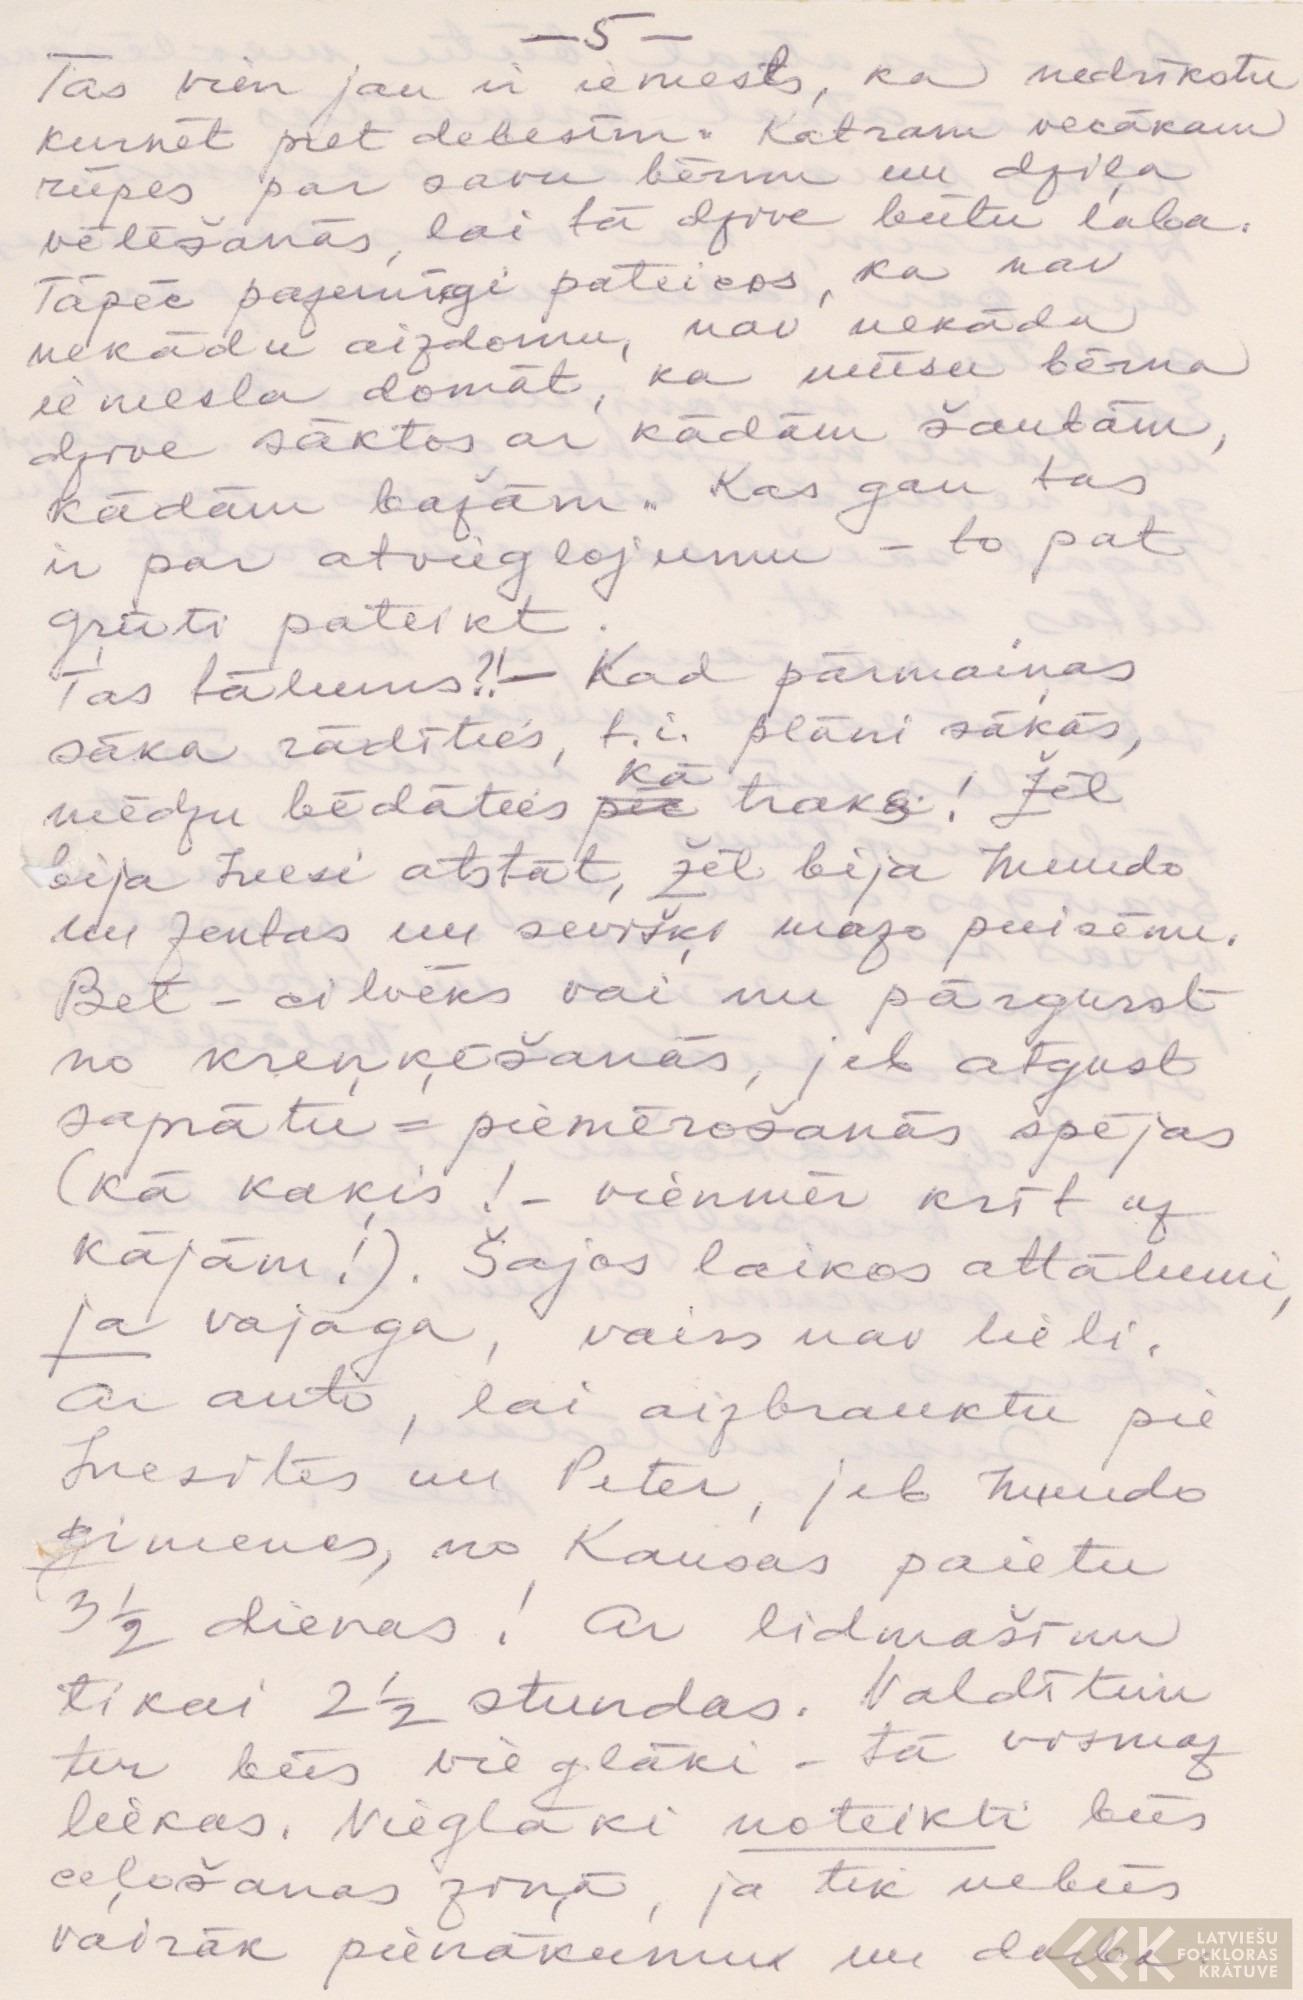 – 5 –
Tas vien jau ir iemesls, ka nedrīkstu
kurnēt pret debesīm. Katram vecākam
rūpes par savu bērnu un dziļa
vēlēšanās, lai tā dzīve būtu laba.
Tāpēc pazemīgi pateicos, ka nav
nekādu aizdomu, nav nekāda
iemesla domāt, ka mūsu bērna
dzīve sāktos ar kādām šautām,
kādām bažām. Kas gan tas
ir par atvieglojumu – to pat
grūti pateikt.
Tas tālums?! – Kad pārmaiņas
sāka rādīties, t.i. plāni sākās,
mēdzu bēdāties kā traks! Žēl
bija Inesi atstāt, žēl bija Mundo
un Zentas un sevišķi mazo puisēnu.
Bet – cilvēks vai nu pārgurst
no kreņķēšanās, jeb atgūst
saprātu = piemērošanās spējas
(kā kaķis! – vienmēr krīt uz
kājām!). Šajos laikos attālumi,
ja vajaga, vairs nav lieli.
Ar auto, lai aizbrauktu pie
Inesītes un Peter, jeb Mundo
ģimenes, no Kansas paietu
3 ½ dienas! Ar lidmašīnu
tikai 2 ½ stundas. Valdītim
tur būs vieglāki – tā vismaz
liekas. Vieglāki noteikti būs
ceļošanas ziņā, ja tik nebūs
vairāk pienākumu un darba.
LATVIEŠU
FOLKLORAS
KRĀTUVE